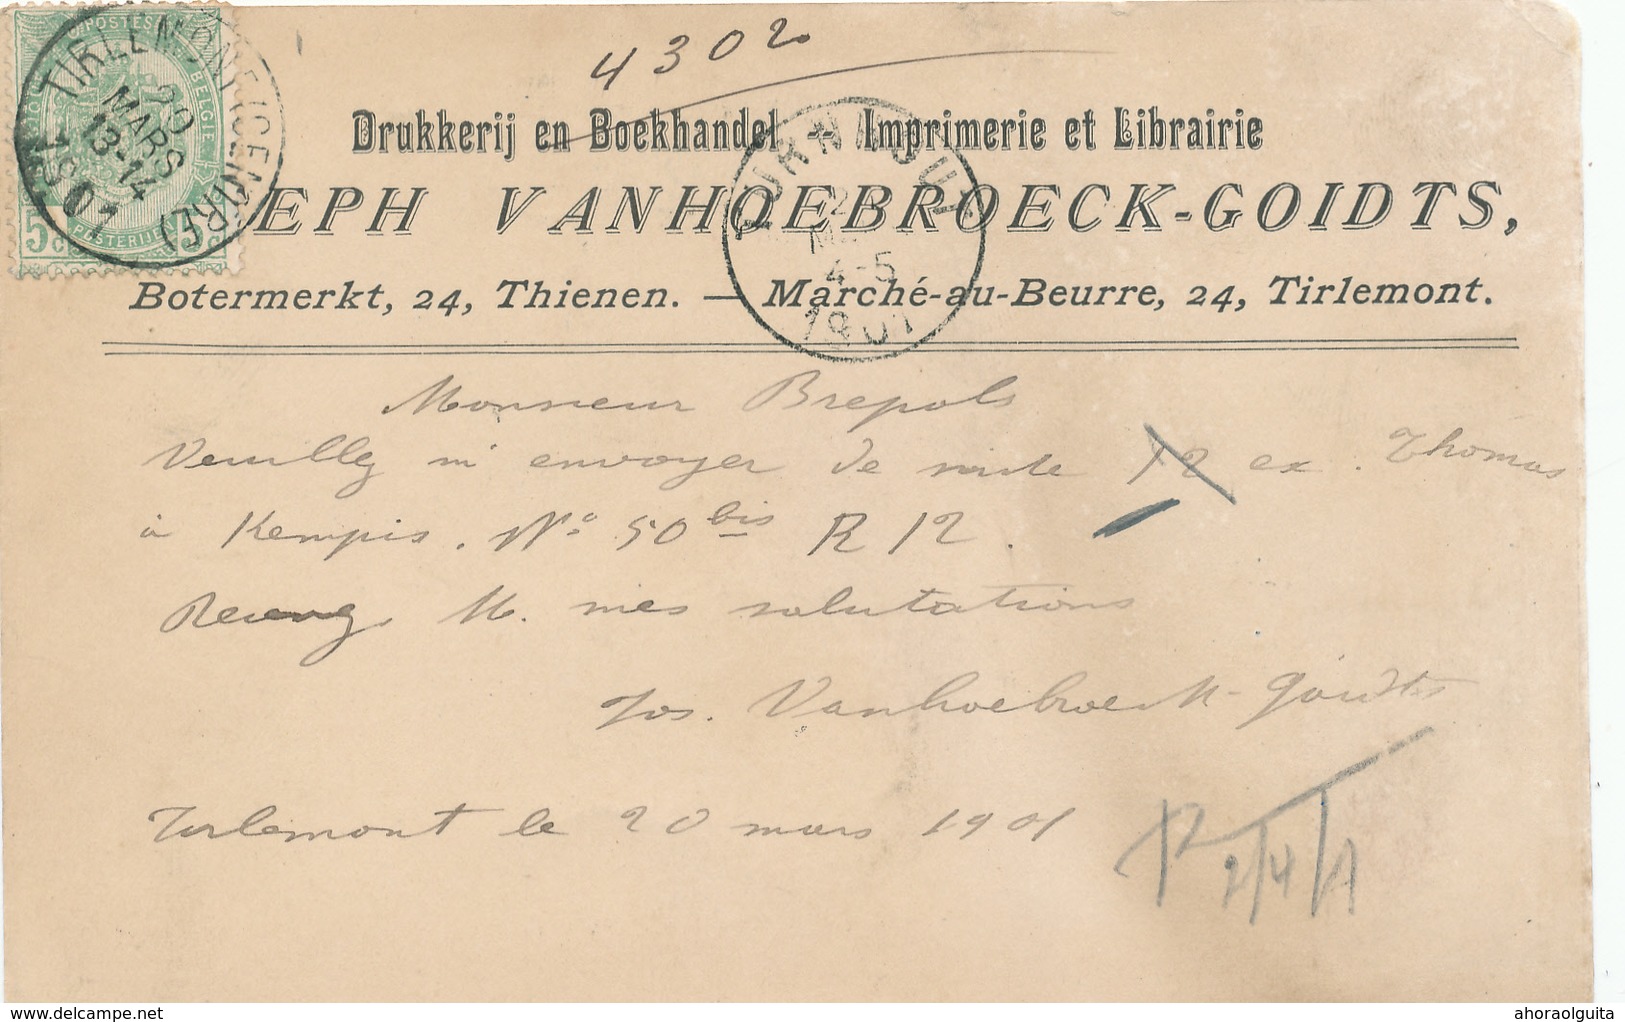 4302
POSTES
BELGIE
5c
POSTERIJEN
5c
TIRLEMONT (CENTRE)
20
MARS
13-14
1901
Drukkerij en Boekhandel Imprimerie et Librairie
EPH VANHOEBROECK-GOIDTS,
TURNHOUT
4-5
1901
Botermerkt, 24, Thienen. — Marché-au-Beurre, 24, Tirlemont.
Monsieur Brepols
Veuillez m'envoyer de suite 12 ex. Thomas
à Kempis. Nº 50 bis R 12.
Recevez, M. mes salutations
Jos. Vanhoebroeck-Goidts
Tirlemont le 20 mars 1901
12
2/4/1
delcampe.net
ahoraolguita